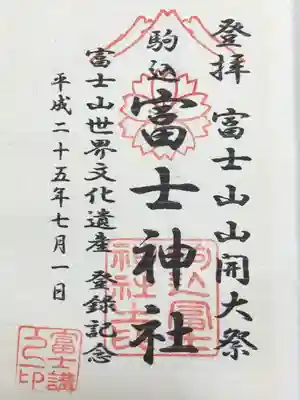 登拝 富士山山開大祭
駒込 富士神社
富士山世界文化遺産 登録記念
平成二十五年七月一日
富士講